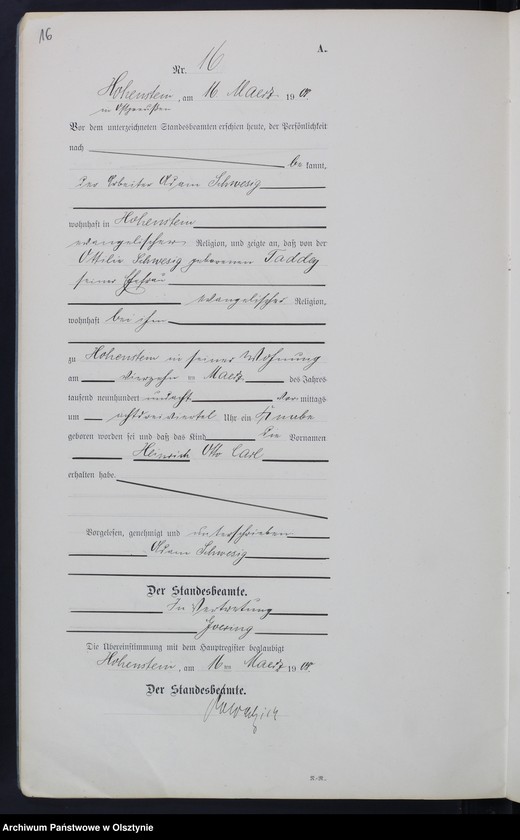 16
A.
Nr. 16
Hohenstein, am 16 Maerz 1908.
in Ostpreußen
Vor dem unterzeichneten Standesbeamten erschien heute, der Persönlichkeit
nach
bekannt,
der Arbeiter Adam Schwesig
wohnhaft in Hohenstein
evangelischer Religion, und zeigte an, daß von der
Ottilie Schwesig geborenen Tadday
seiner Ehefrau
evangelischer Religion,
wohnhaft bei ihm
zu Hohenstein in seiner Wohnung
am vierzehn ten Maerz des Jahres
tausend neunhundert und acht vormittags
um achtdreiviertel Uhr ein Knabe
geboren worden sei und daß das Kind die Vornamen
Heinrich Otto Carl
erhalten habe.
Vorgelesen, genehmigt und unterschrieben
Adam Schwesig
Der Standesbeamte.
In Vertretung
Die Übereinstimmung mit dem Hauptregister beglaubigt
Hohenstein, am 16ten Maerz 1908.
Der Standesbeamte.
R.-R.
Archiwum Państwowe w Olsztynie